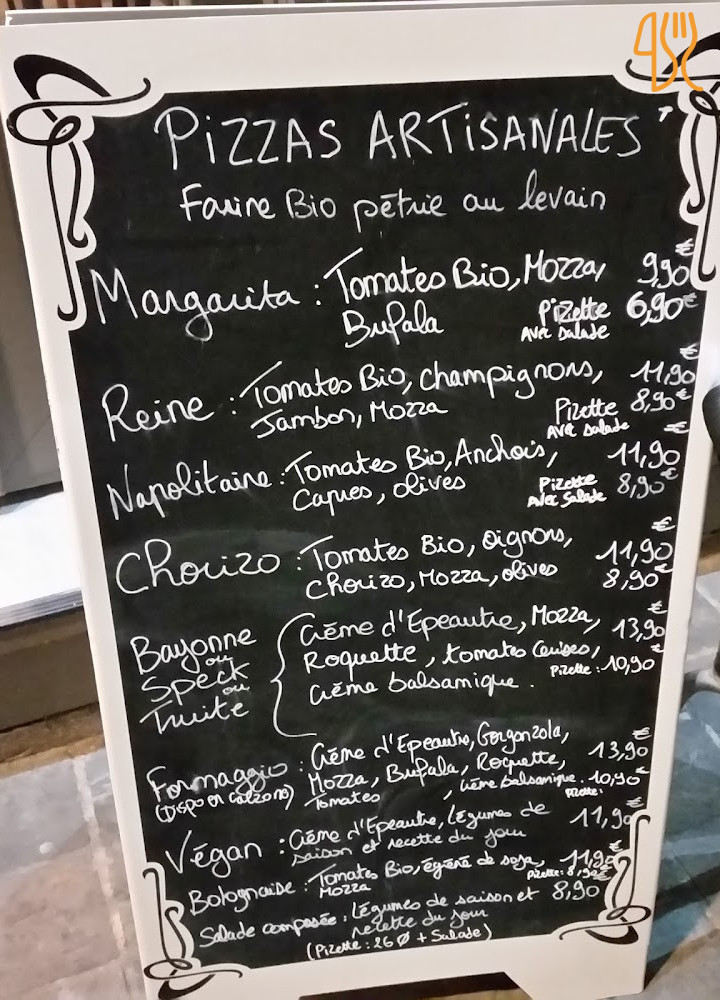 PIZZAS ARTISANALES
Farine Bio pétrie au levain
Margarita : Tomates Bio, Mozza, 9,90€
Bufala Pizette 6,90€
Avec Salade
Reine : Tomates Bio, champignons, 11,90€
Jambon, Mozza Pizette 8,90€
Avec Salade
Napolitaine : Tomates Bio, Anchois, 11,90€
Capres, olives Pizette 8,90€
Avec Salade
Chorizo : Tomates Bio, oignons, 11,90€
Chorizo, Mozza, olives 8,90€
Bayonne ou Speck ou Truite
Crème d'Epeautre, Mozza, 13,90€
Roquette, tomates Cerises, Pizette : 10,90€
Crème balsamique.
Formaggio : Crème d'Epeautre, Gorgonzola, 13,90€
(Dispo en Calzone) Mozza, Bufala, Roquette,
Tomates, Crème balsamique. Pizette : 10,90€
Végan : Crème d'Epeautre, Légumes de 11,90€
saison et recette du jour
Bolognaise : Tomates Bio, égréné de soja, 11,90€
Mozza Pizette : 8,90€
Salade composée : Légumes de saison et 8,90
recette du jour
(Pizette : 26 Ø + Salade)